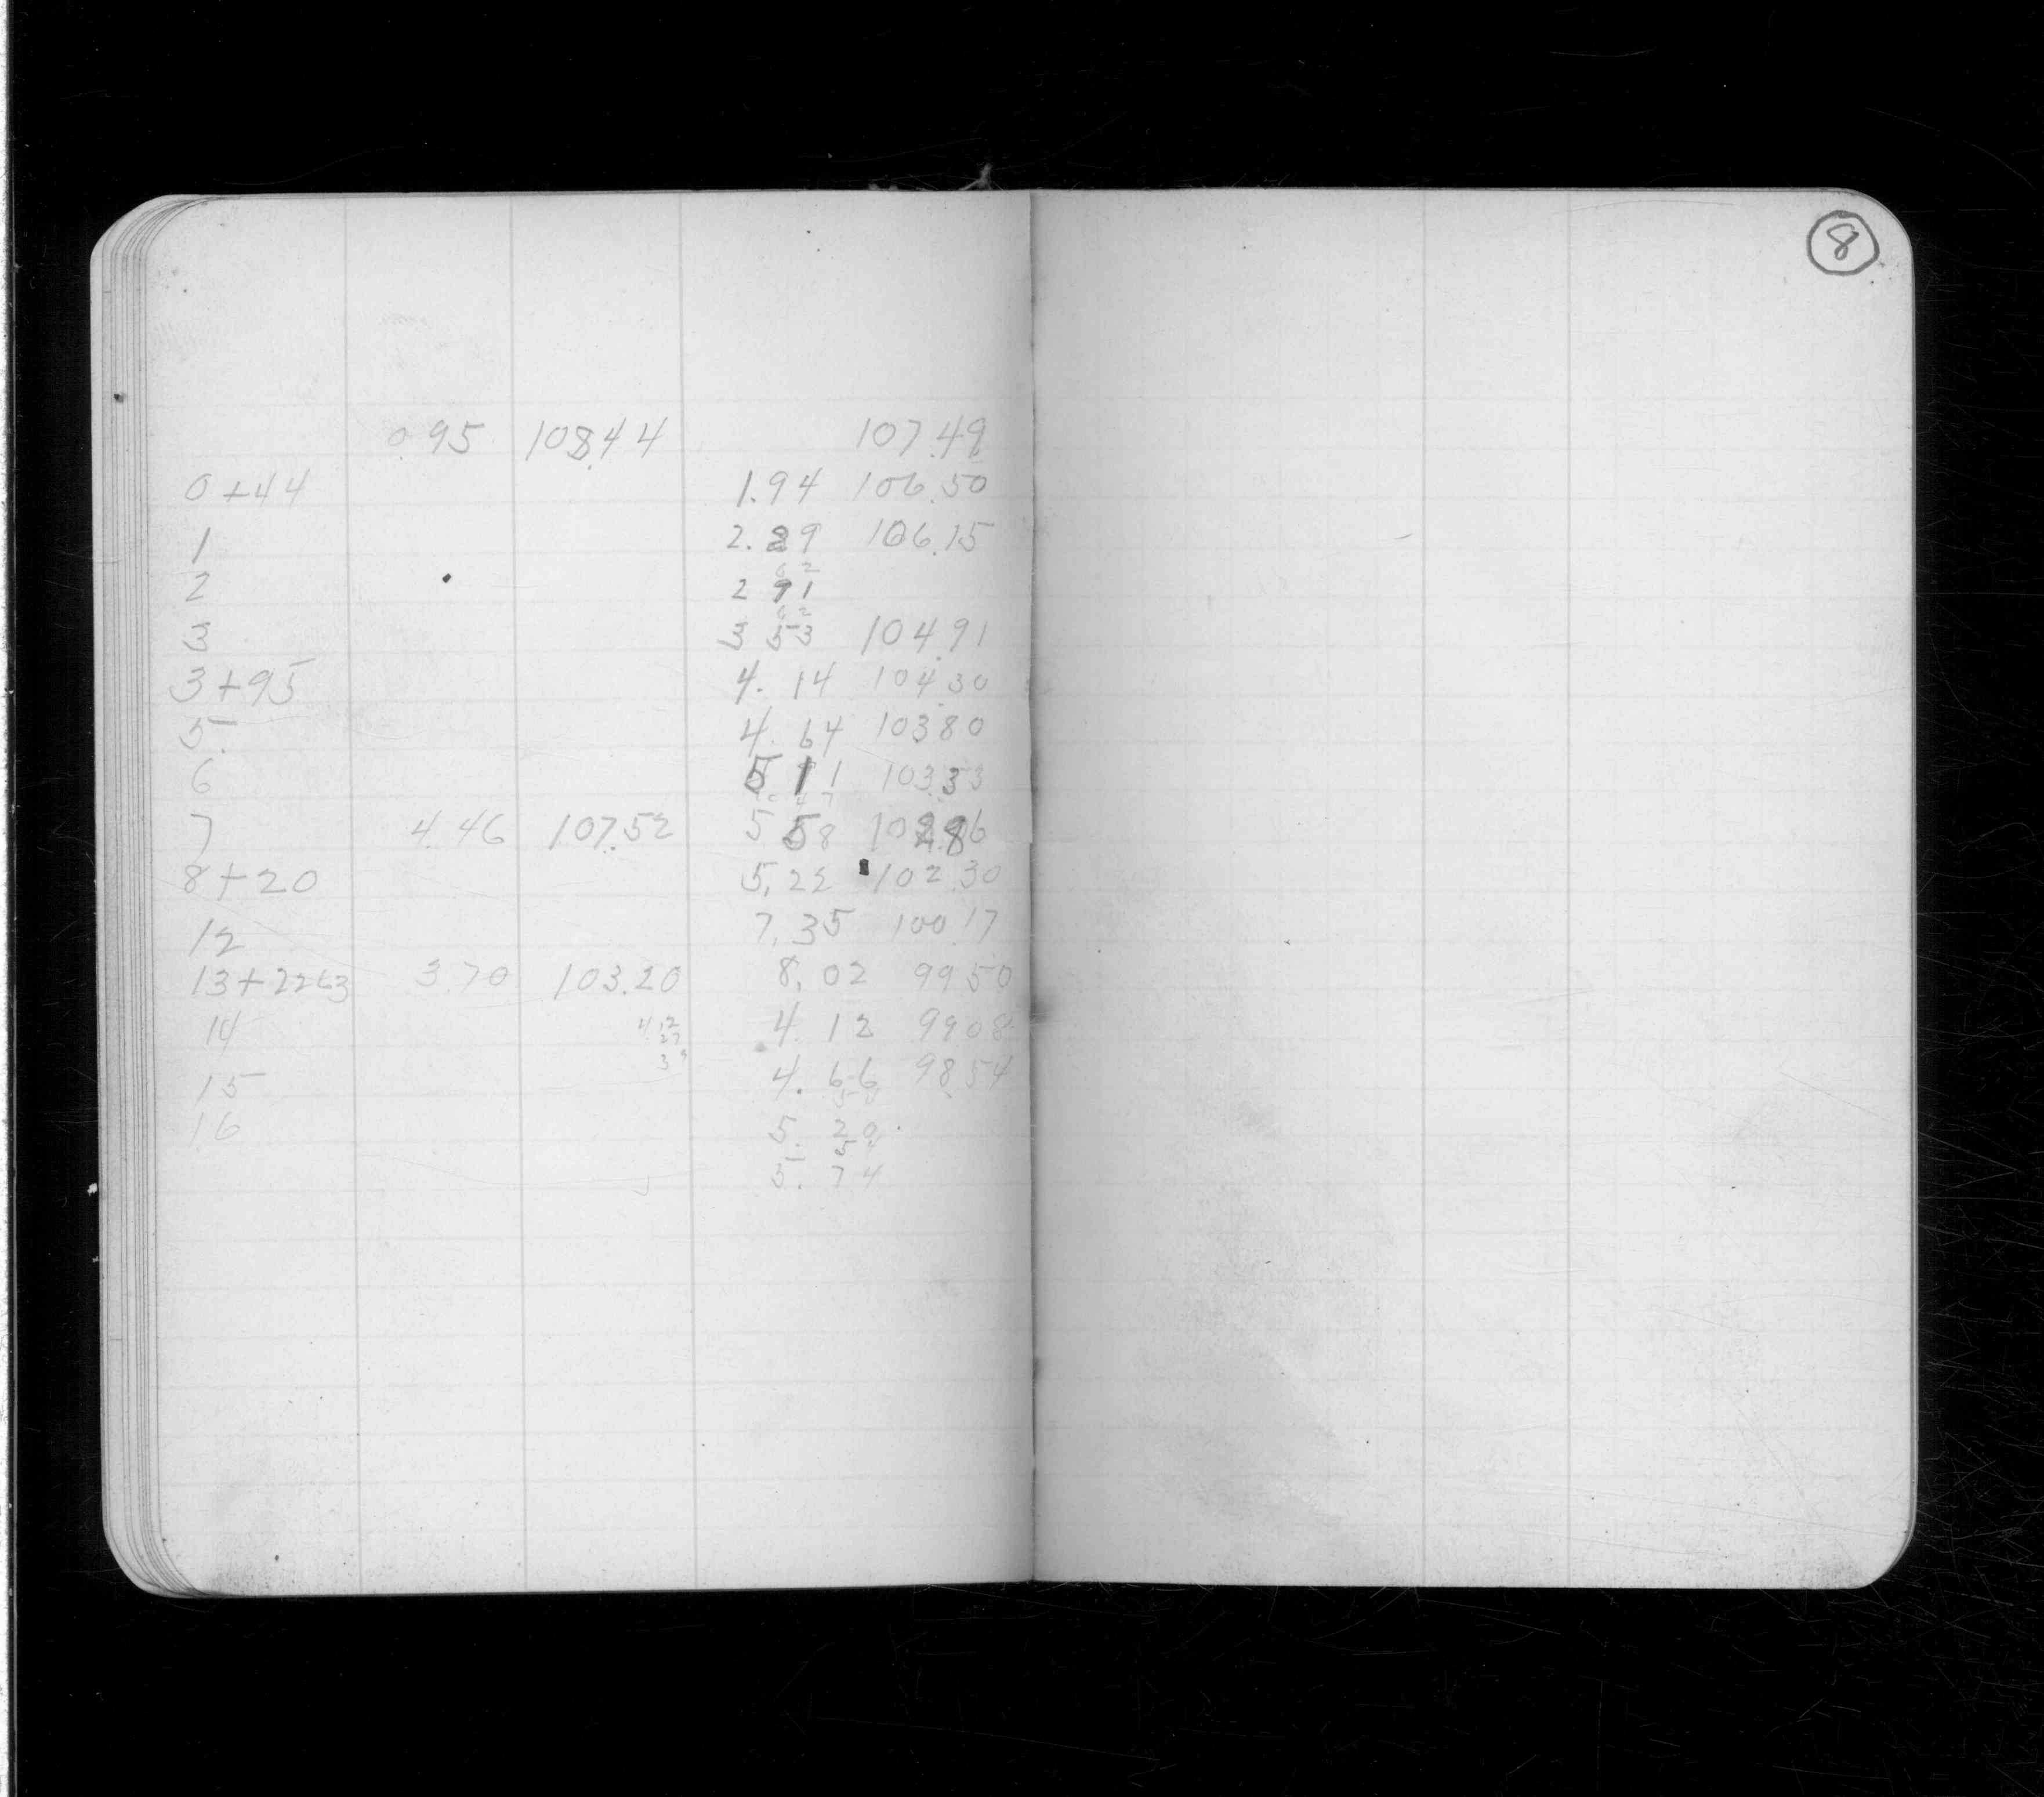 8
0.95 108.44 107.49
0+44 1.94 106.50
1 2.29 106.15
6 2
2 2 91
6 2
3 3 53 104.91
3+95 4. 14 104.30
5. 4. 64 103.80
6 5. 11 103.33
4 7
7 4.46 107.52 5 58 102.86
8+20 5.22 102.30
12 7.35 100.17
13+2263 3.70 103.20 8.02 99 50
14 4.12 4. 12 99 08
27
3 9
15 4. 66 98.54
5 4
16 5. 20
5 4
5. 74